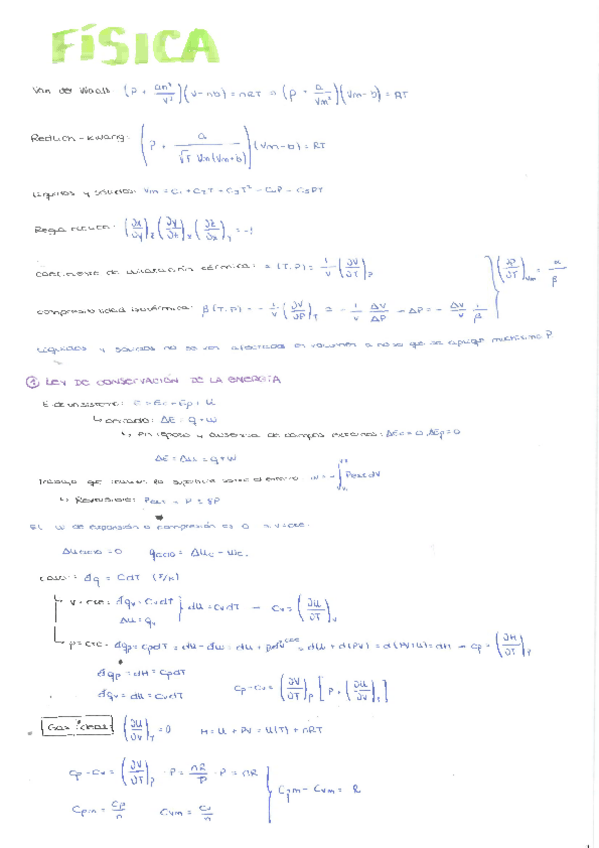 FÍSICA
Van der Waals: (P + an²/V²)(V-nb) = nRT ⇒ (P + a/Vm²)(Vm-b) = RT
Redlich-Kwong: (P + a/(√T Vm(Vm+b)))(Vm-b) = RT
Líquidos y sólidos: Vm = C1 + C2T + C3T² - C4P - C5PT
Regla cíclica: (∂x/∂y)z (∂y/∂z)x (∂z/∂x)y = -1
coeficiente de dilatación térmica: α(T,P) = 1/V (∂V/∂T)P
(∂P/∂T)Vm = α/β
compresibilidad isotérmica: β(T,P) = - 1/V (∂V/∂P)T ≈ - 1/V ΔV/ΔP → ΔP = - ΔV/V 1/β
Líquidos y sólidos no se ven afectados en volumen a no ser que se aplique muchísimo P.
① LEY DE CONSERVACIÓN DE LA ENERGÍA
E de un sistema: E = Ec + Ep + U
↳ cerrado: ΔE = q + w
↳ en reposo y ausencia de campos externos: ΔEc = 0, ΔEp = 0
ΔE = ΔU = q + w
Trabajo que la superficie sobre el entorno w = - ∫ Pext dV
↳ Reversible: Pext = P
El w de expansión o compresión es 0 V = cte.
ΔU ciclo = 0 q ciclo = ΔUc - wc.
calor: đq = CdT (J/K)
V = cte: đqv = CvdT
ΔU = qv
dU = CvdT → Cv = (∂U/∂T)V
P = cte - đqp = CpdT = dU - đw = dU + PdV = dU + d(PV) = d(PV+U) = dH → Cp = (∂H/∂T)P
đqp = dH = CpdT
đqv = dU = CvdT
Cp - Cv = (∂V/∂T)P [P + (∂U/∂V)T]
Gas ideal (∂U/∂V)T = 0 H = U + PV = U(T) + nRT
Cp - Cv = (∂V/∂T)P · P = nR/P · P = nR
Cpm - Cvm = R
Cpm = Cp/n Cvm = Cv/n